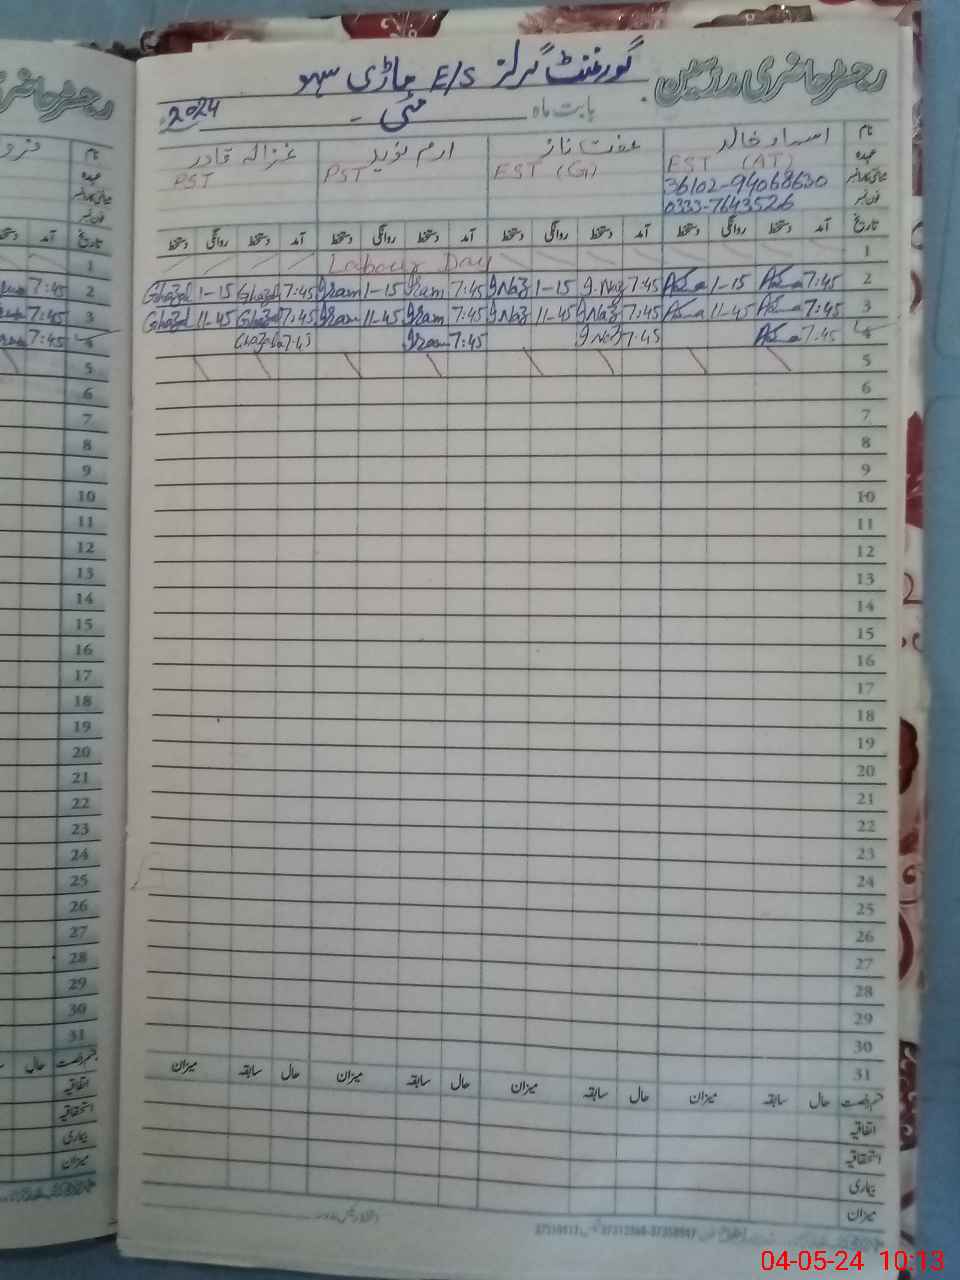 رجسٹر حاضری مدرسین گورنمنٹ گرلز E/S جاڑی سہو
بابت ماہ مئی 2024
نام اسماء خالد عفت ناز ارم نوید غزالہ قادر
عہدہ EST (AT) EST (G) PST PST
شناختی کارڈ نمبر 36102-94068630
فون نمبر 0333-7643526
تاریخ آمد دستخط روانگی دستخط آمد دستخط روانگی دستخط آمد دستخط روانگی دستخط آمد دستخط روانگی دستخط
1 Labour Day
2 7:45 Asma 1-15 Asma 7:45 I.Naz 1-15 I.Naz 7:45 Iram 1-15 Iram 7:45 Ghazal 1-15 Ghazal
3 7:45 Asma 11-45 Asma 7:45 I.Naz 11-45 I.Naz 7:45 Iram 11-45 Iram 7:45 Ghazal 11-45 Ghazal
4 7:45 Asma 7:45 I.Naz 7:45 Iram 7:45 Ghazala
5
6
7
8
9
10
11
12
13
14
15
16
17
18
19
20
21
22
23
24
25
26
27
28
29
30
31
قسم رخصت حال سابقہ میزان حال سابقہ میزان حال سابقہ میزان حال سابقہ میزان
اتفاقیہ
استحقاقیہ
بیماری
میزان
04-05-24 10:13